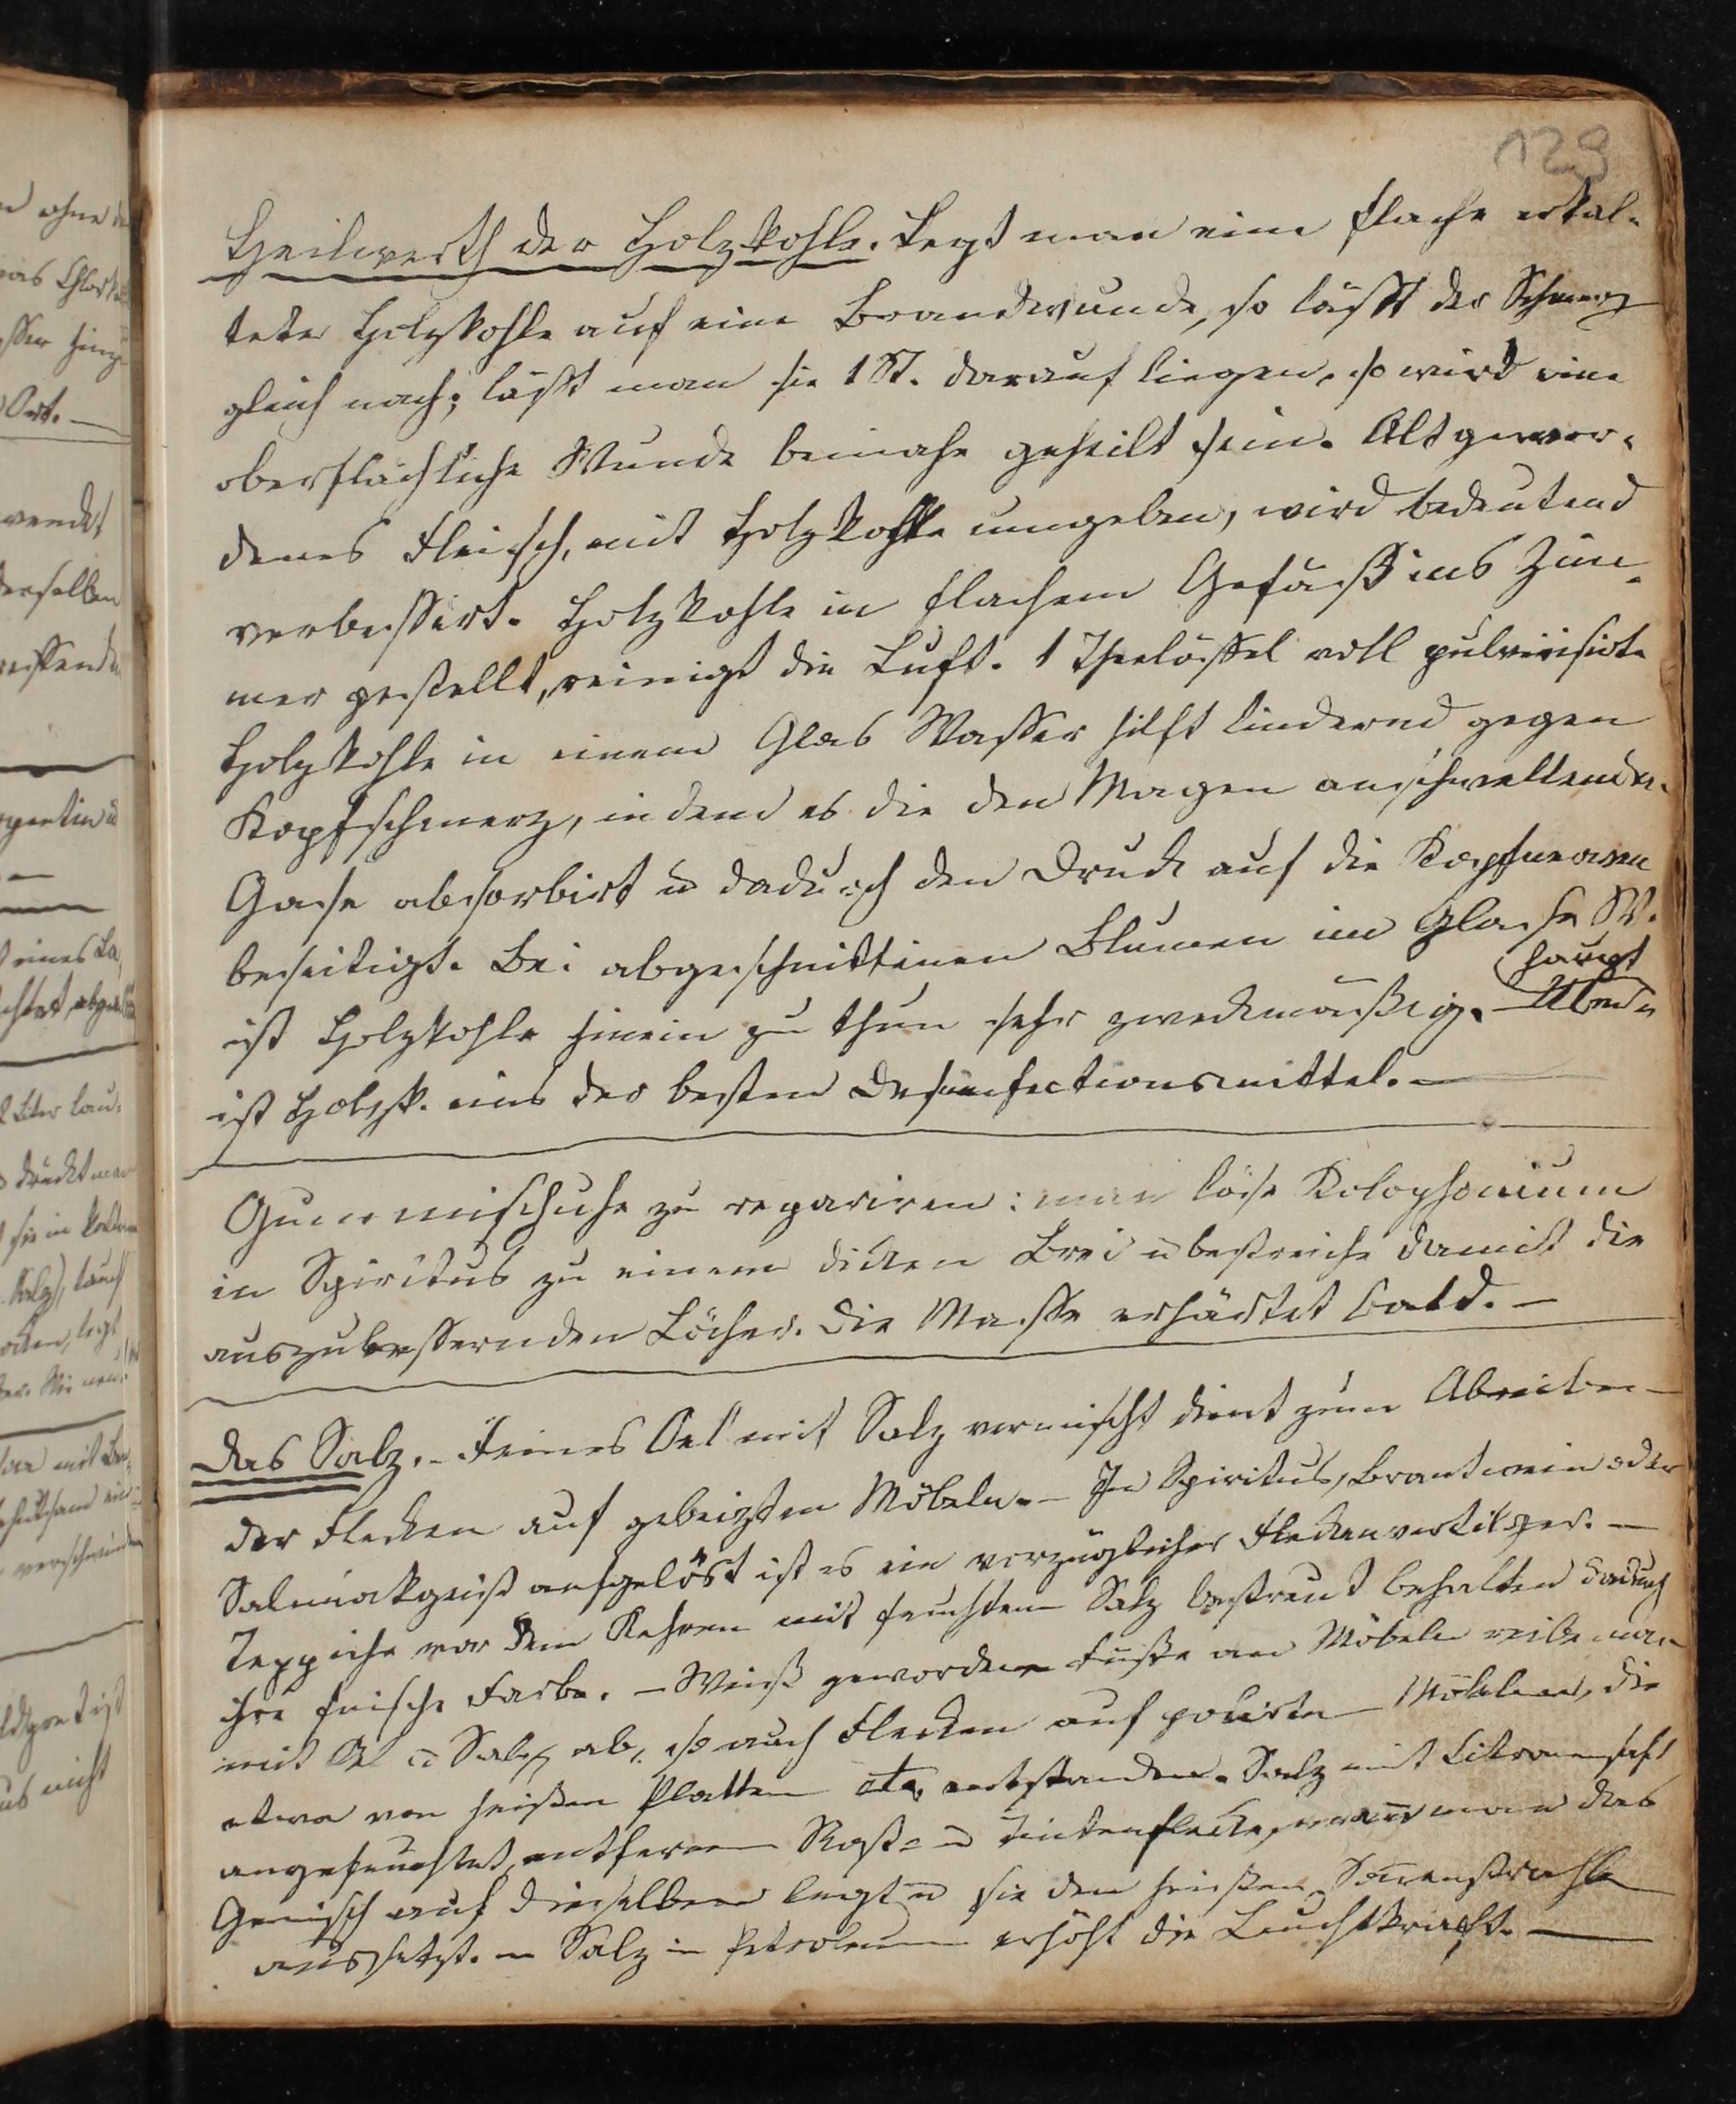 129
Heilwerth der Holzkohle. Legt man eine flache erkal-
tete Holzkohle auf eine Brandwunde, so läßt der Schmerz
gleich nach; läßt man sie 1 St. darauf liegen, so wird eine
oberflächliche Wunde beinahe geheilt sein. Altgewor-
denes Fleisch, mit Holzkohle umgeben, wird bedeutend
verbessert. Holzkohle in flachem Gefäß ins Zim-
mer gestellt, reinigt die Luft. 1 Theelöffel voll pulverisirte
Holzkohle in einem Glas Wasser hilft lindernd gegen
Kopfschmerz, indem es die den Magen anschwellenden
Gase absorbirt u dadurch den Druck auf die Kopfnerven
beseitigt. Bei abgeschnittenen Blumen im Glase W.
ist Holzkohle hinein zu thun sehr zweckmäßig. – Über
haupt
ist Holzk. eins der besten Desinfectionsmittel. –
Gummischuhe zu repariren: man löse Kolophonium
in Spiritus zu einem dicken Brei u bestreiche damit die
auszubessernden Löcher. Die Masse erhärtet bald. –
Das Salz. – Feines Oel mit Salz vermischt dient zum Abreiben
der Flecken auf gebeizten Möbeln. – In Spiritus, Brantwein oder
Salmiakgeist aufgelöst ist es ein vorzüglicher Fleckenvertilger. –
Teppiche vor dem Kehren mit feuchtem Salz bestreut behalten dadurch
ihre frische Farbe. – Weiß gewordene Füße an Möbeln reibe man
mit Oel u Salz ab, so auch Flecken auf polirten Möbeln, die
etwa von heißen Platten etc. entstanden. Salz mit Citronensaft
angefeuchtet, entfernen Rost- u Tintenflecke, wenn man das
Gemisch auf dieselben legt u sie den heißen Sonnenstrahlen
aussetzt. – Salz in Petroleum erhöht die Leuchtkraft. –